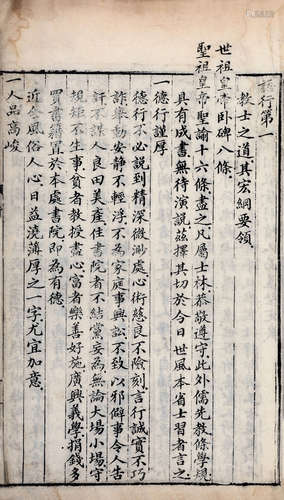 行第一
教士之道其宏綱要領
世祖皇帝臥碑八條
聖祖皇帝聖諭十六條盡之凡屬士林恭敬遵守此外儒先教條學規
具有成書無待演說茲擇其切於今日世風本省士習者言之
一德行謹厚
德行不必說到精深微渺處心術慈良不險刻言行誠實不巧
詐舉動安靜不輕浮不為家庭事興訟不致以邪僻事令人告
訐不謀人良田美產住書院者不結黨妄為無論大場小場守
規矩不生事貧者教授盡心富者樂善好施廣興義學捐錢多
買書籍置於本處書院即為有德
近今風俗人心日益澆薄厚之一字尤宜加意
一人品高峻